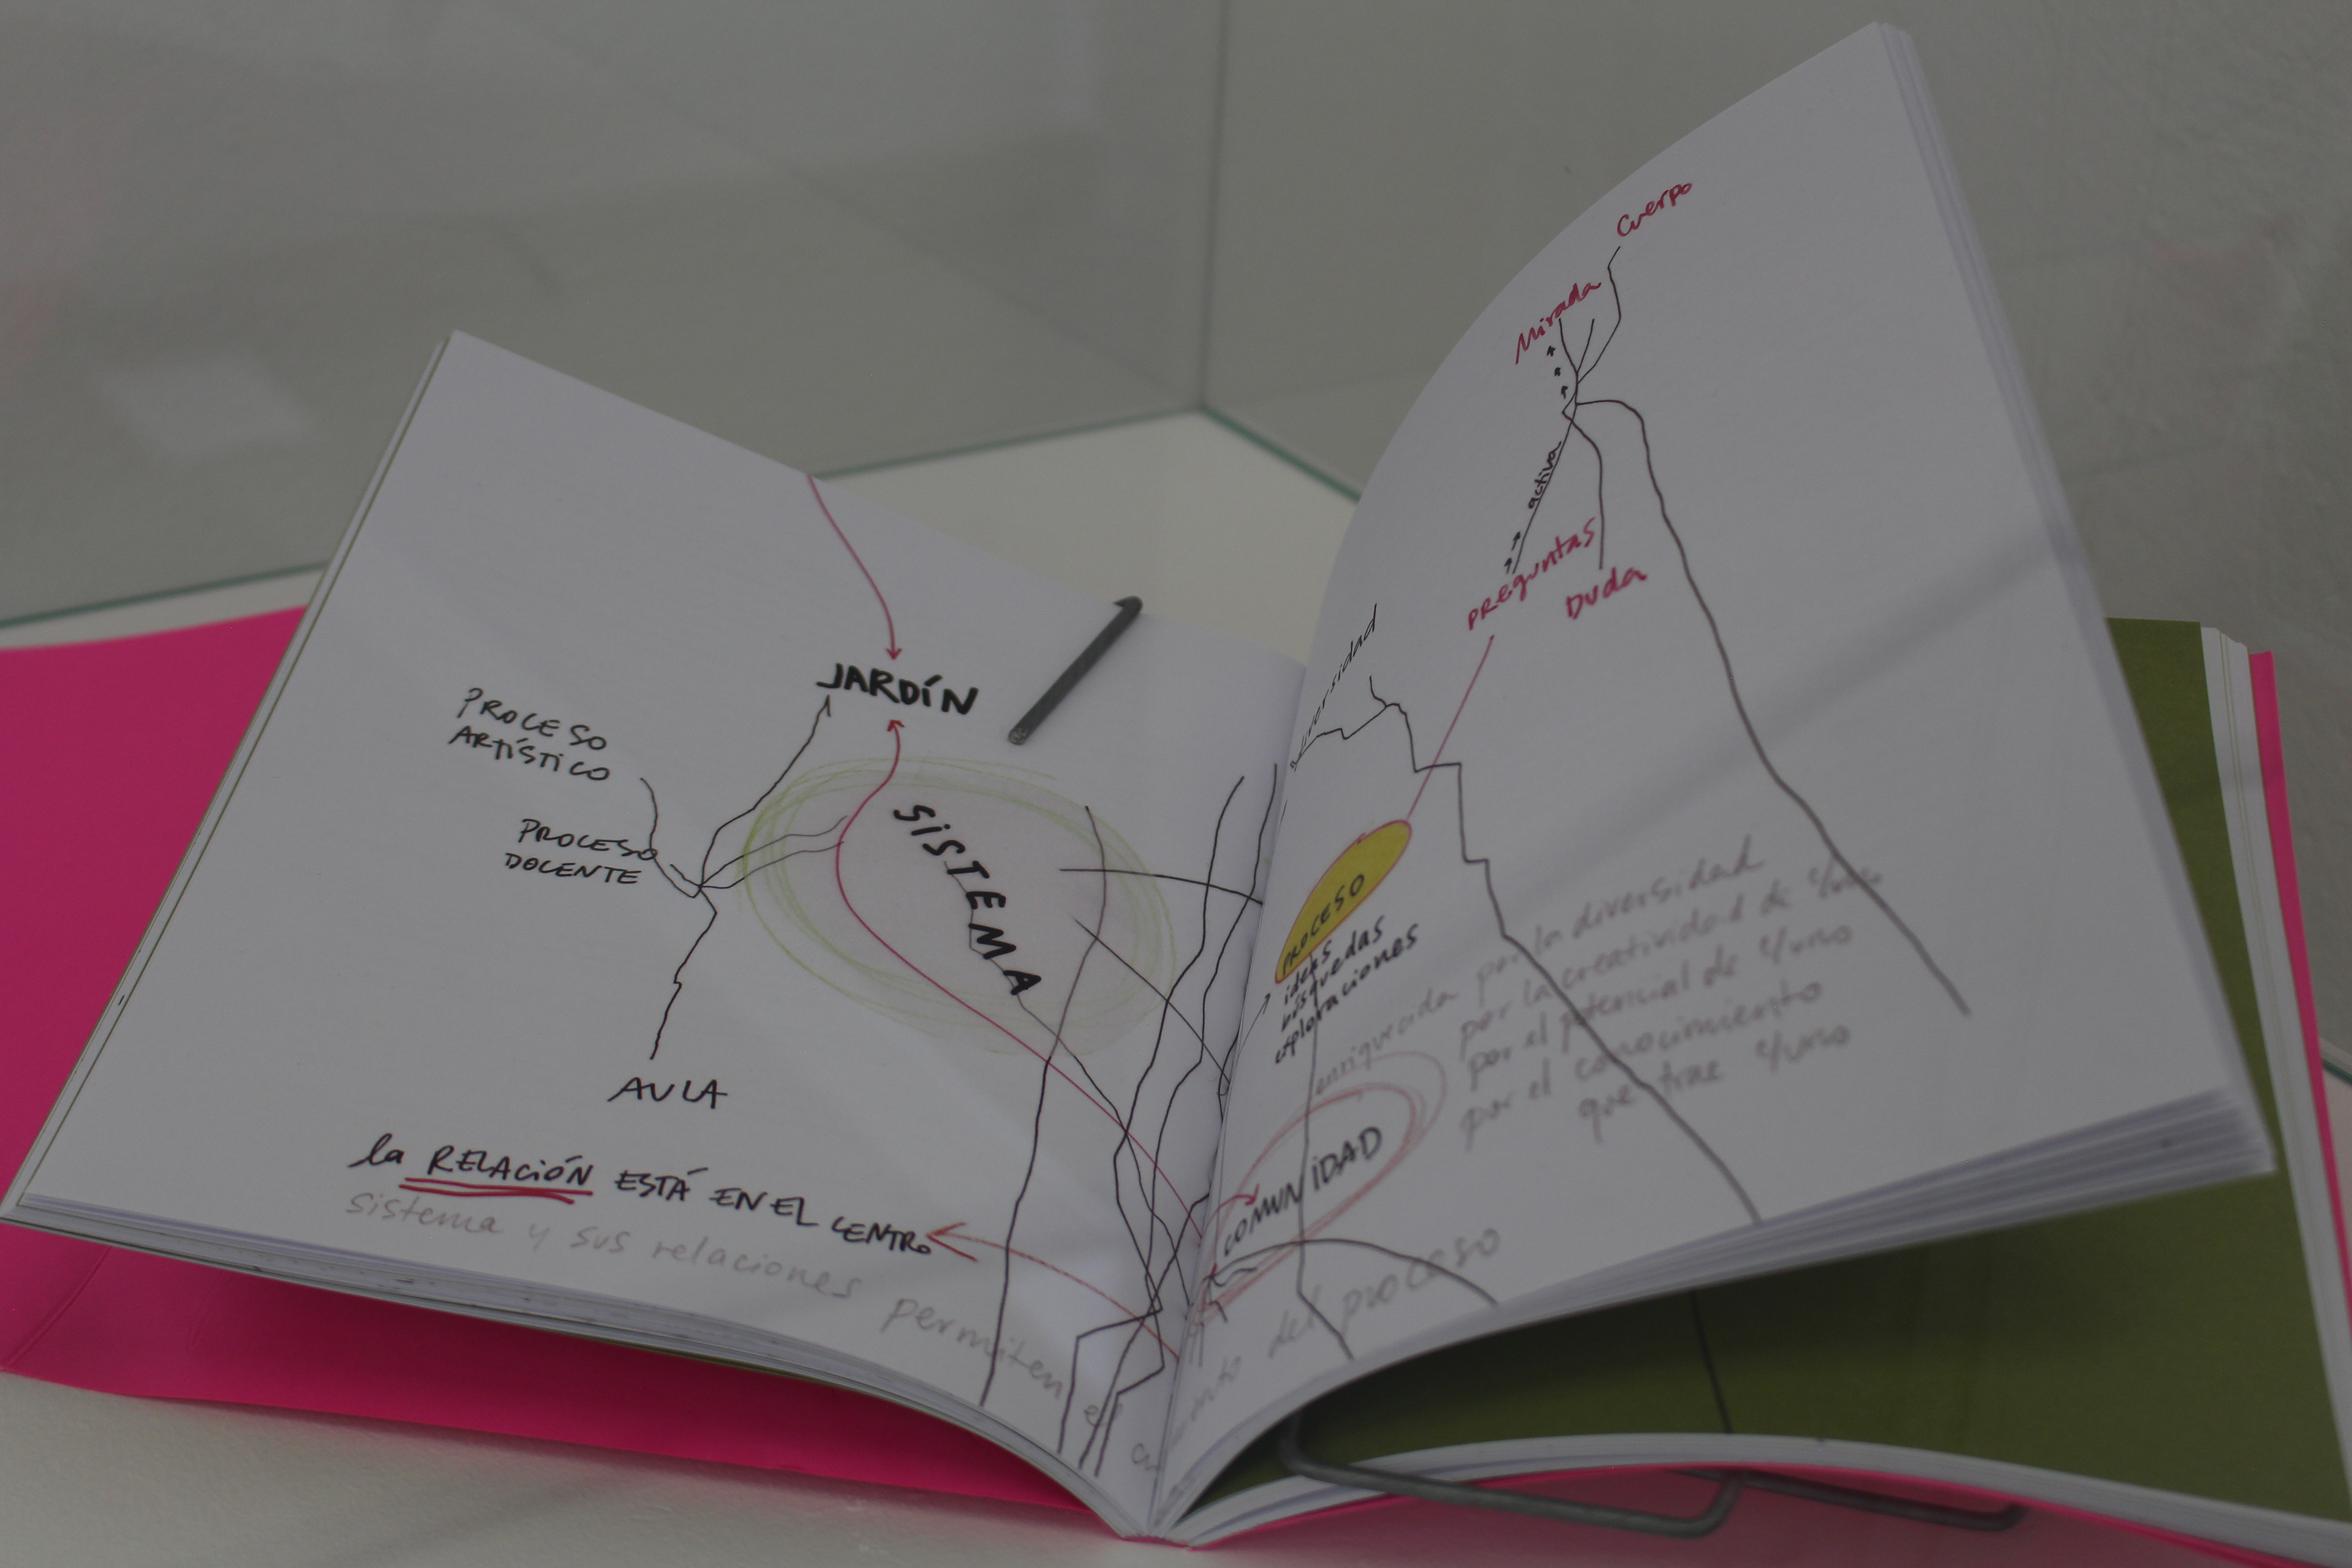 JARDÍN
PROCESO
ARTÍSTICO
PROCESO
DOCENTE
SISTEMA
AULA
la RELACIÓN ESTÁ EN EL CENTRO
sistema y sus relaciones permiten el
Cuerpo
Mirada
activa
preguntas
Duda
PROCESO
ideas
búsquedas
exploraciones
enriquecida por la diversidad
por la creatividad de c/uno
por el potencial de c/uno
por el conocimiento
que trae c/uno
COMUNIDAD
del proceso